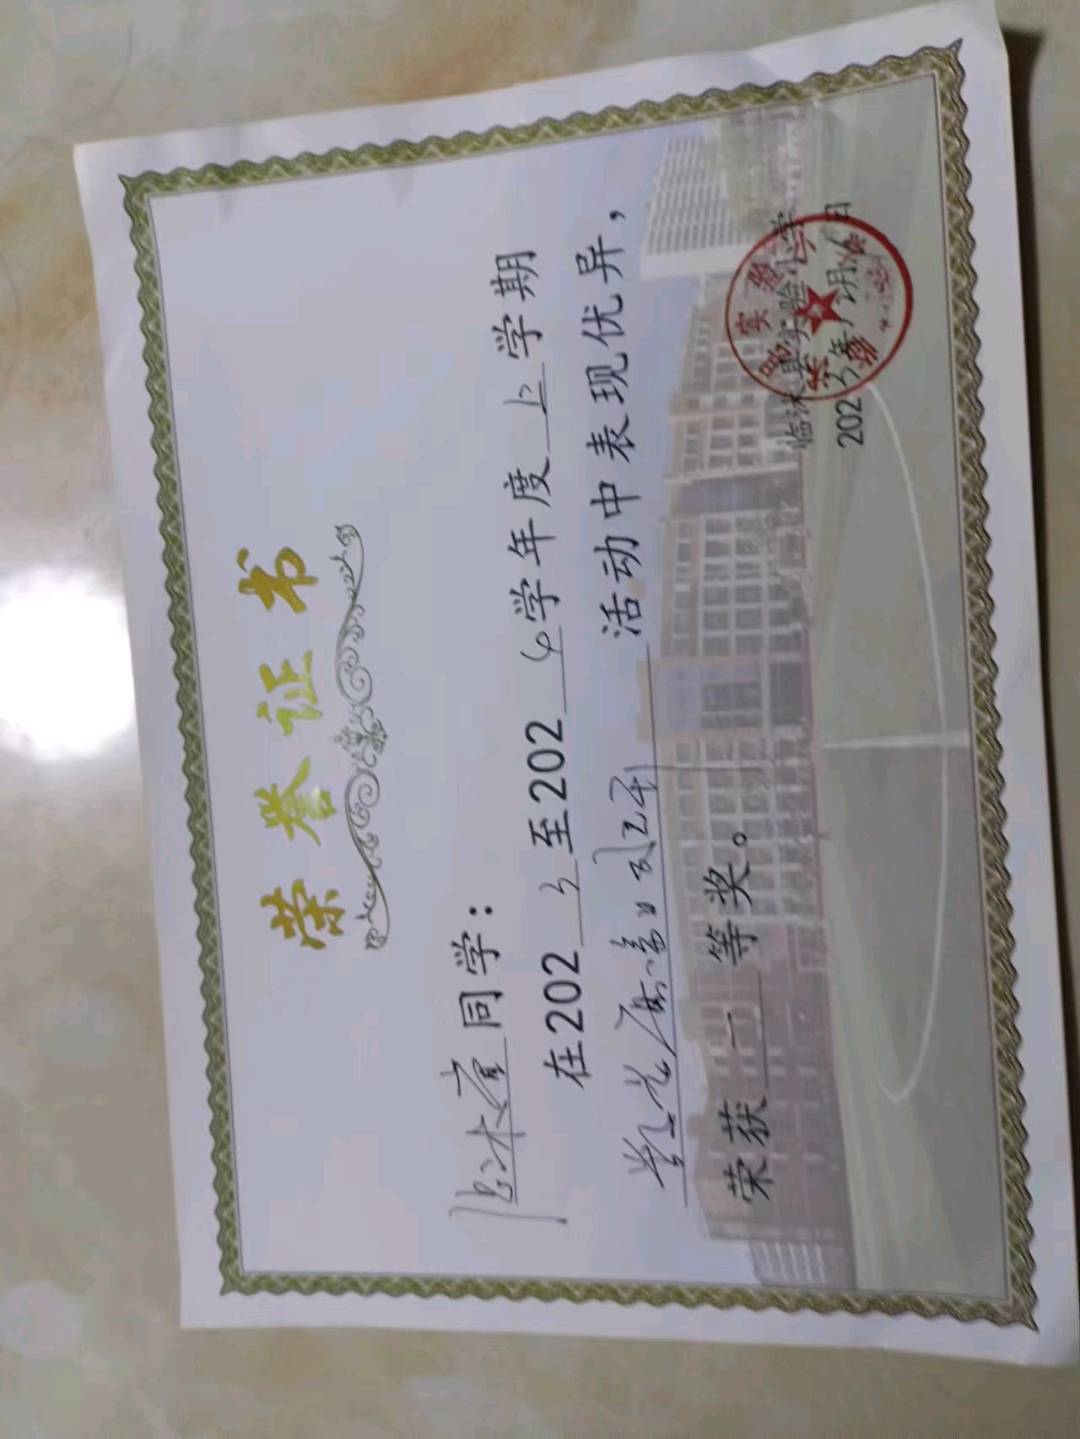 荣誉证书
同学：
在2023至2024学年度上学期
活动中表现优异，
荣获一等奖。
临沭县实验小学
2023年 月 日